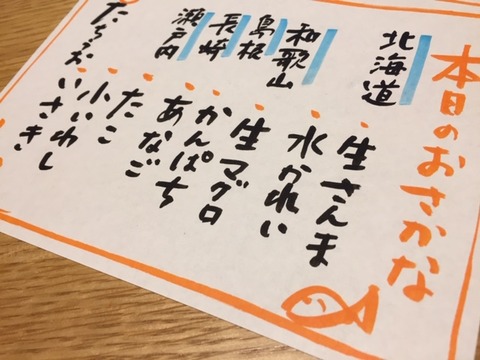 本日のおさかな
北海道・生さんま
・水かれい
和歌山・生マグロ
島根・かんぱち
長崎・あなご
瀬戸内・たこ
・小いわし
・いさき
たちうお